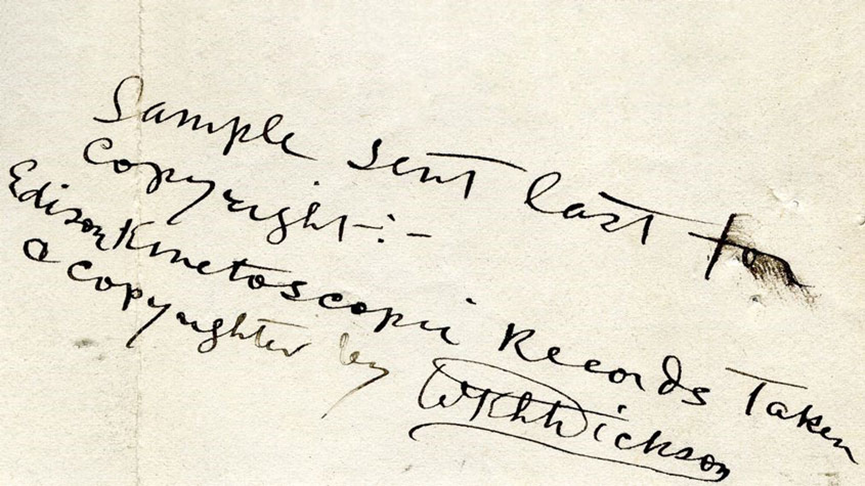 Sample sent last for
Copyright:-
Edison Kinetoscopic Records Taken
& copyrighted by WKLDickson